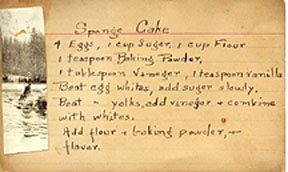 Sponge Cake
4 Eggs, 1 cup Suger, 1 cup Flour
1 teaspoon Baking Powder,
1 tablespoon Vineger, 1 teaspoon vanilla
Beat egg whites, add suger slowly.
Beat " yolks, add vineger + combine
with whites.
Add flour + baking powder, +
flavor.